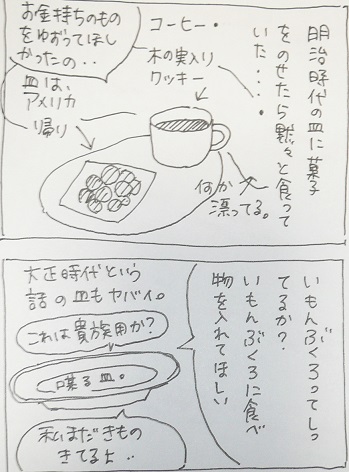 明治時代の皿に菓子
をのせたら黙々と食って
いた・・・・
コーヒー・
木の実入り
クッキー
お金持ちのもの
をゆおってほし
かったの・・
皿は、
アメリカ
帰り
何か
漂ってる。
いもんぶくろってしっ
てるか？
いもんぶくろに食べ
物を入れてほしい
大正時代という
話の皿もヤバイ。
これは貴族用か？
喋る皿。
私まだきもの
きてるよ・・